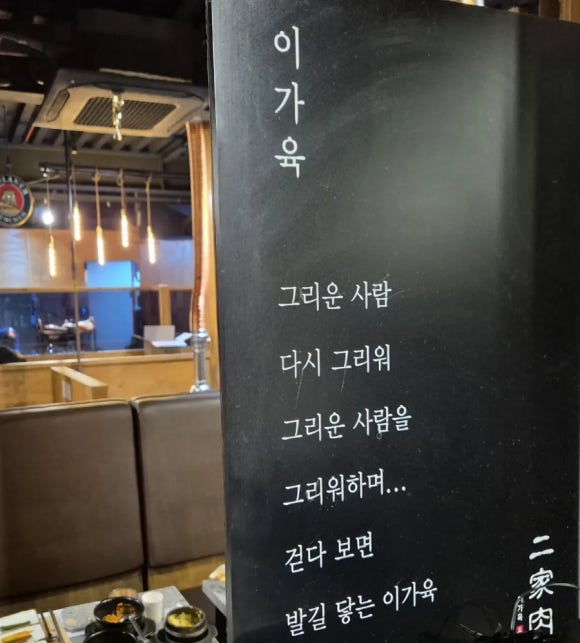 이가육
그리운 사람
다시 그리워
그리운 사람을
그리워하며...
걷다 보면
발길 닿는 이가육
二家肉
이가육